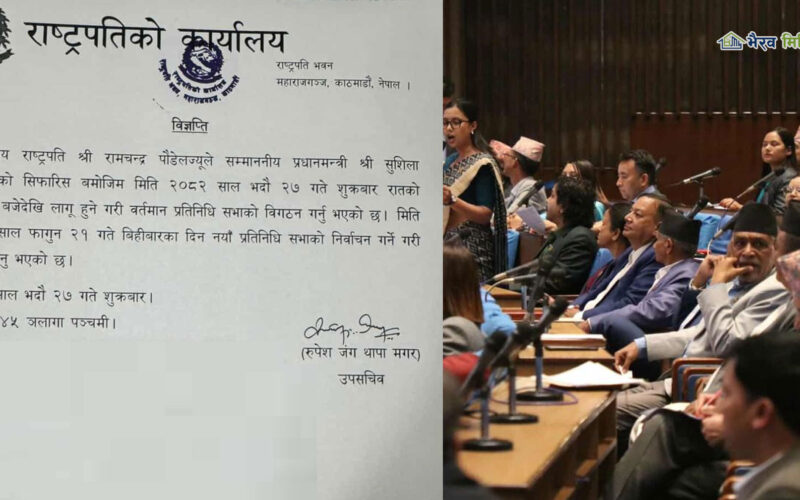 राष्ट्रपतिको कार्यालय
राष्ट्रपति भवन
महाराजगञ्ज, काठमाडौं, नेपाल ।
विज्ञप्ति
राष्ट्रपति श्री रामचन्द्र पौडेलज्यूले सम्माननीय प्रधानमन्त्री श्री सुशिला
को सिफारिस बमोजिम मिति २०८२ साल भदौ २७ गते शुक्रबार रातको
बजेदेखि लागू हुने गरी वर्तमान प्रतिनिधि सभाको विगठन गर्नु भएको छ। मिति
साल फागुन २१ गते बिहीबारका दिन नयाँ प्रतिनिधि सभाको निर्वाचन गर्ने गरी
भएको छ।
साल भदौ २७ गते शुक्रबार।
४५ ञलागा पञ्चमी।
(रुपेश जंग थापा मगर)
उपसचिव
भैरव